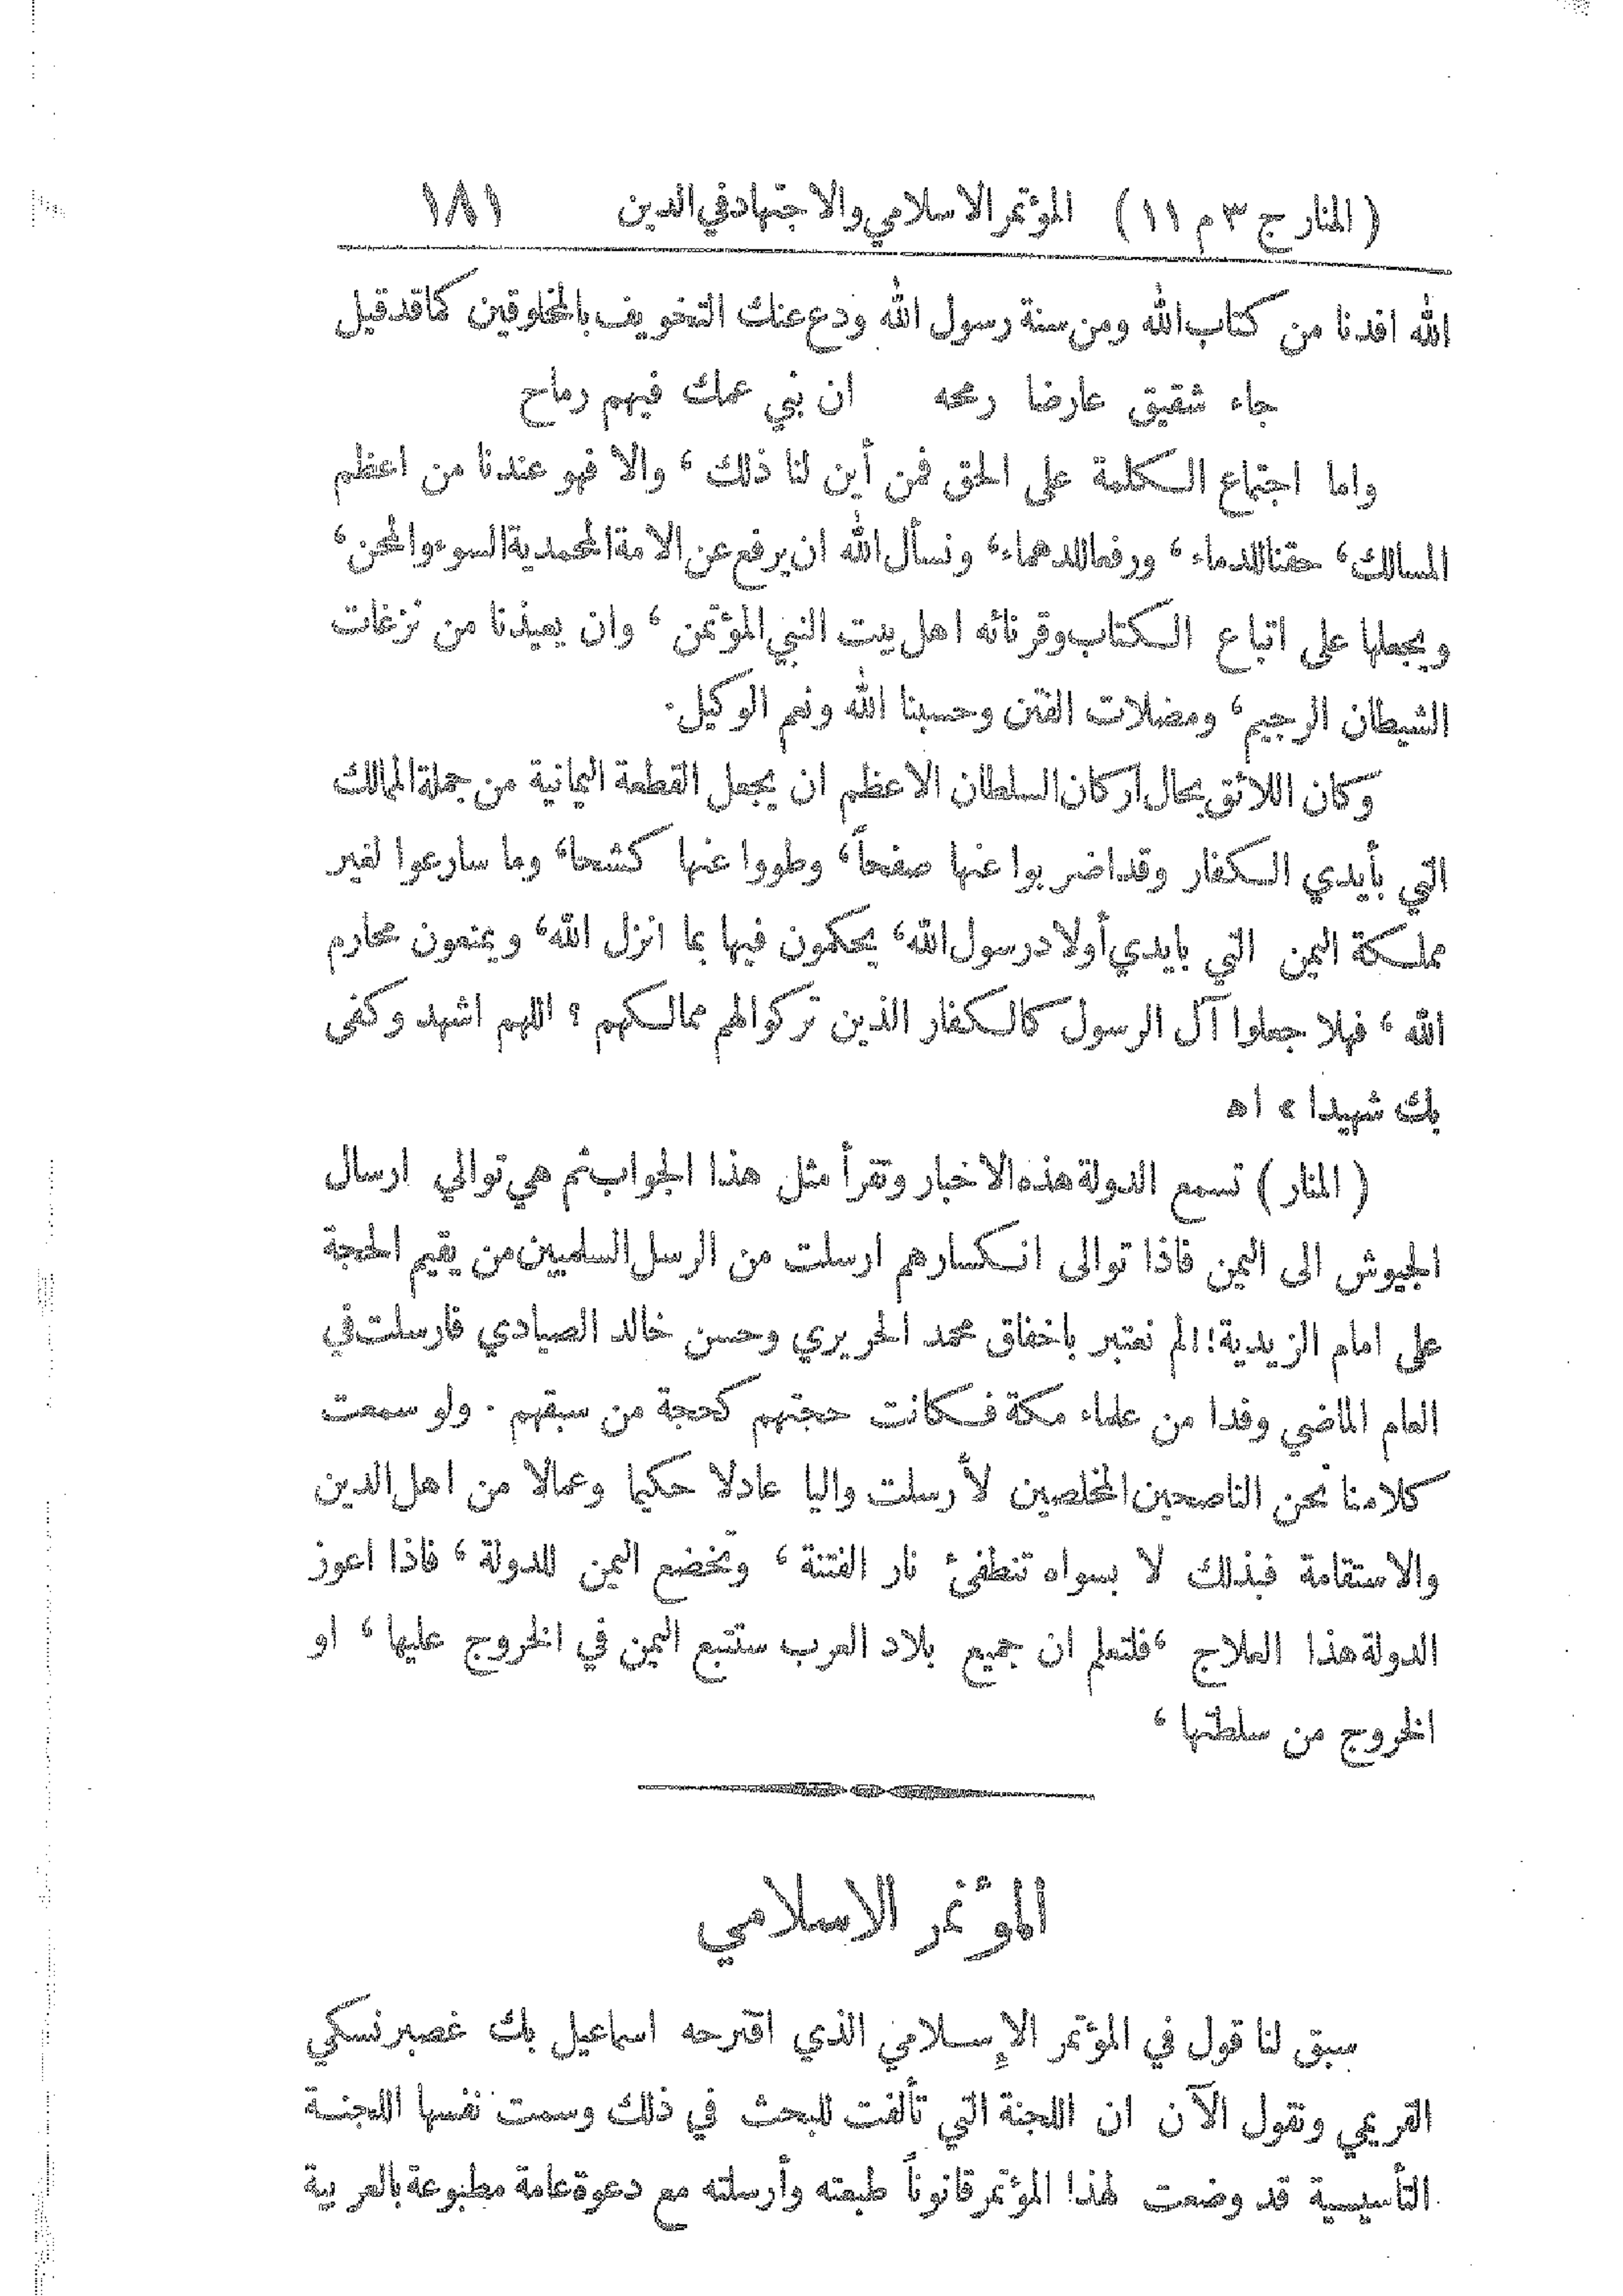 (المنار ج ٣ م ١١) المؤتمر الاسلامي والاجتهاد في الدين ١٨١
الله افدنا من كتاب الله ومن سنة رسول الله ودع عنك التخويف بالمخلوقين كما قد قيل
جاء شقيق عارضا رمحه ان بني عمك فيهم رماح
واما اجتماع الكلمة على الحق فمن أين لنا ذلك، والا فهو عندنا من اعظم
المسالك، حقنا للدماء، ورفعا للدهماء، ونسأل الله ان يرفع عن الامة المحمدية السوء والمحن،
ويجعلها على اتباع الكتاب وقرنائه اهل بيت النبي المؤتمن، وان يعيذنا من نزغات
الشيطان الرجيم، ومضلات الفتن وحسبنا الله ونعم الوكيل.
وكان اللائق بحال اركان السلطان الاعظم ان يجعل القطعة اليمانية من جملة الممالك
التي بأيدي الكفار وقد اضربوا عنها صفحاً، وطووا عنها كشحا، وما سارعوا لغير
مملكة اليمن التي بايدي أولاد رسول الله، يحكمون فيها بما انزل الله، ويمنعون محارم
الله، فهلا جعلوا آل الرسول كالكفار الذين تركوا لهم ممالكهم؟ اللهم اشهد وكفى
بك شهيدا» اه
(المنار) تسمع الدولة هذه الاخبار وتقرأ مثل هذا الجواب ثم هي توالي ارسال
الجيوش الى اليمن فاذا توالى انكسارهم ارسلت من الرسل السلميين من يقيم الحجة
على امام الزيدية!! لم تعتبر باخفاق محمد الحريري وحسن خالد الصيادي فارسلت في
العام الماضي وفدا من علماء مكة فكانت حجتهم كحجة من سبقهم. ولو سمعت
كلامنا نحن الناصحين المخلصين لأرسلت واليا عادلا حكيما وعمالا من اهل الدين
والاستقامة فبذلك لا بسواه تنطفئ نار الفتنة، وتخضع اليمن للدولة، فاذا اعوز
الدولة هذا العلاج، فلتعلم ان جميع بلاد العرب ستتبع اليمن في الخروج عليها، او
الخروج من سلطتها،
المؤتمر الاسلامي
سبق لنا قول في المؤتمر الإسلامي الذي اقترحه اسماعيل بك غصبرنسكي
القريمي ونقول الآن ان اللجنة التي تألفت للبحث في ذلك وسمت نفسها اللجنة
التأسيسية قد وضعت لهذا المؤتمر قانوناً طبعته وأرسلته مع دعوة عامة مطبوعة بالعربية